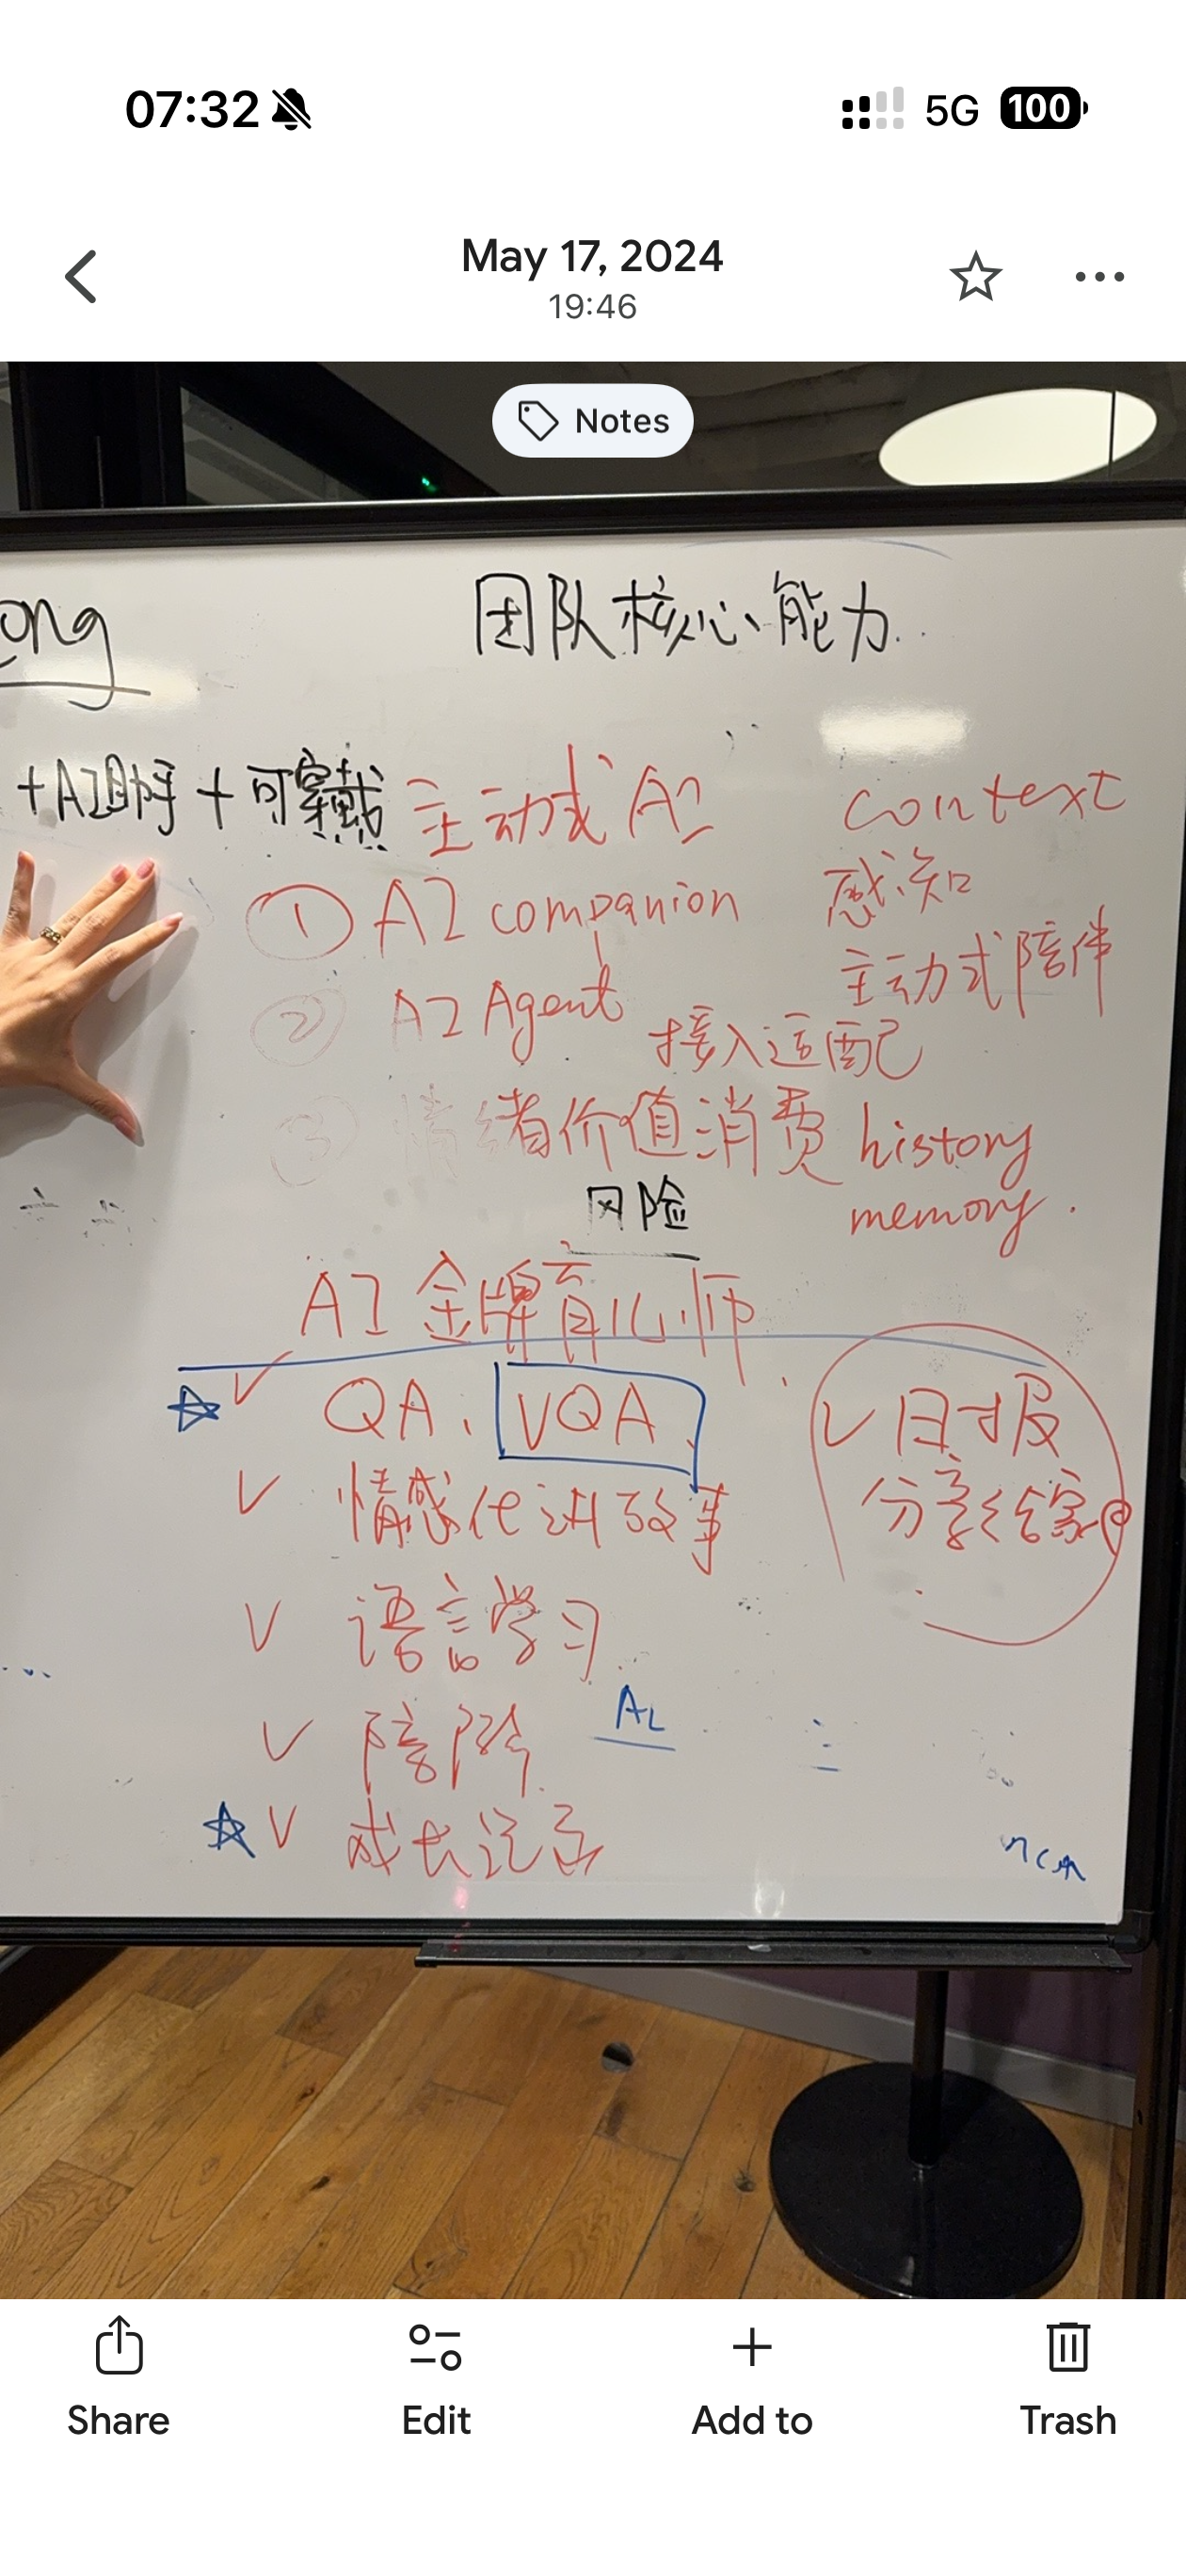 07:32
5G 100
May 17, 2024
19:46
Notes
ong
团队核心能力
+AI助手+可穿戴
主动式AI
context
① AI companion
感知
主动式陪伴
② AI Agent
接入适配
③ 情绪价值消费
history
memory.
风险
AI金牌育儿师
✓ QA、VQA
✓ 日报
分享给家
✓ 情感化讲故事
✓ 语言学习
✓ 陪
✓ 成长记录
Share
Edit
Add to
Trash